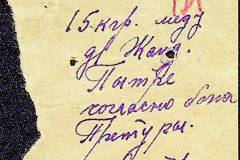 15 кгр. меду
др Жанд.
Пытре
согласно бона
Претуры.